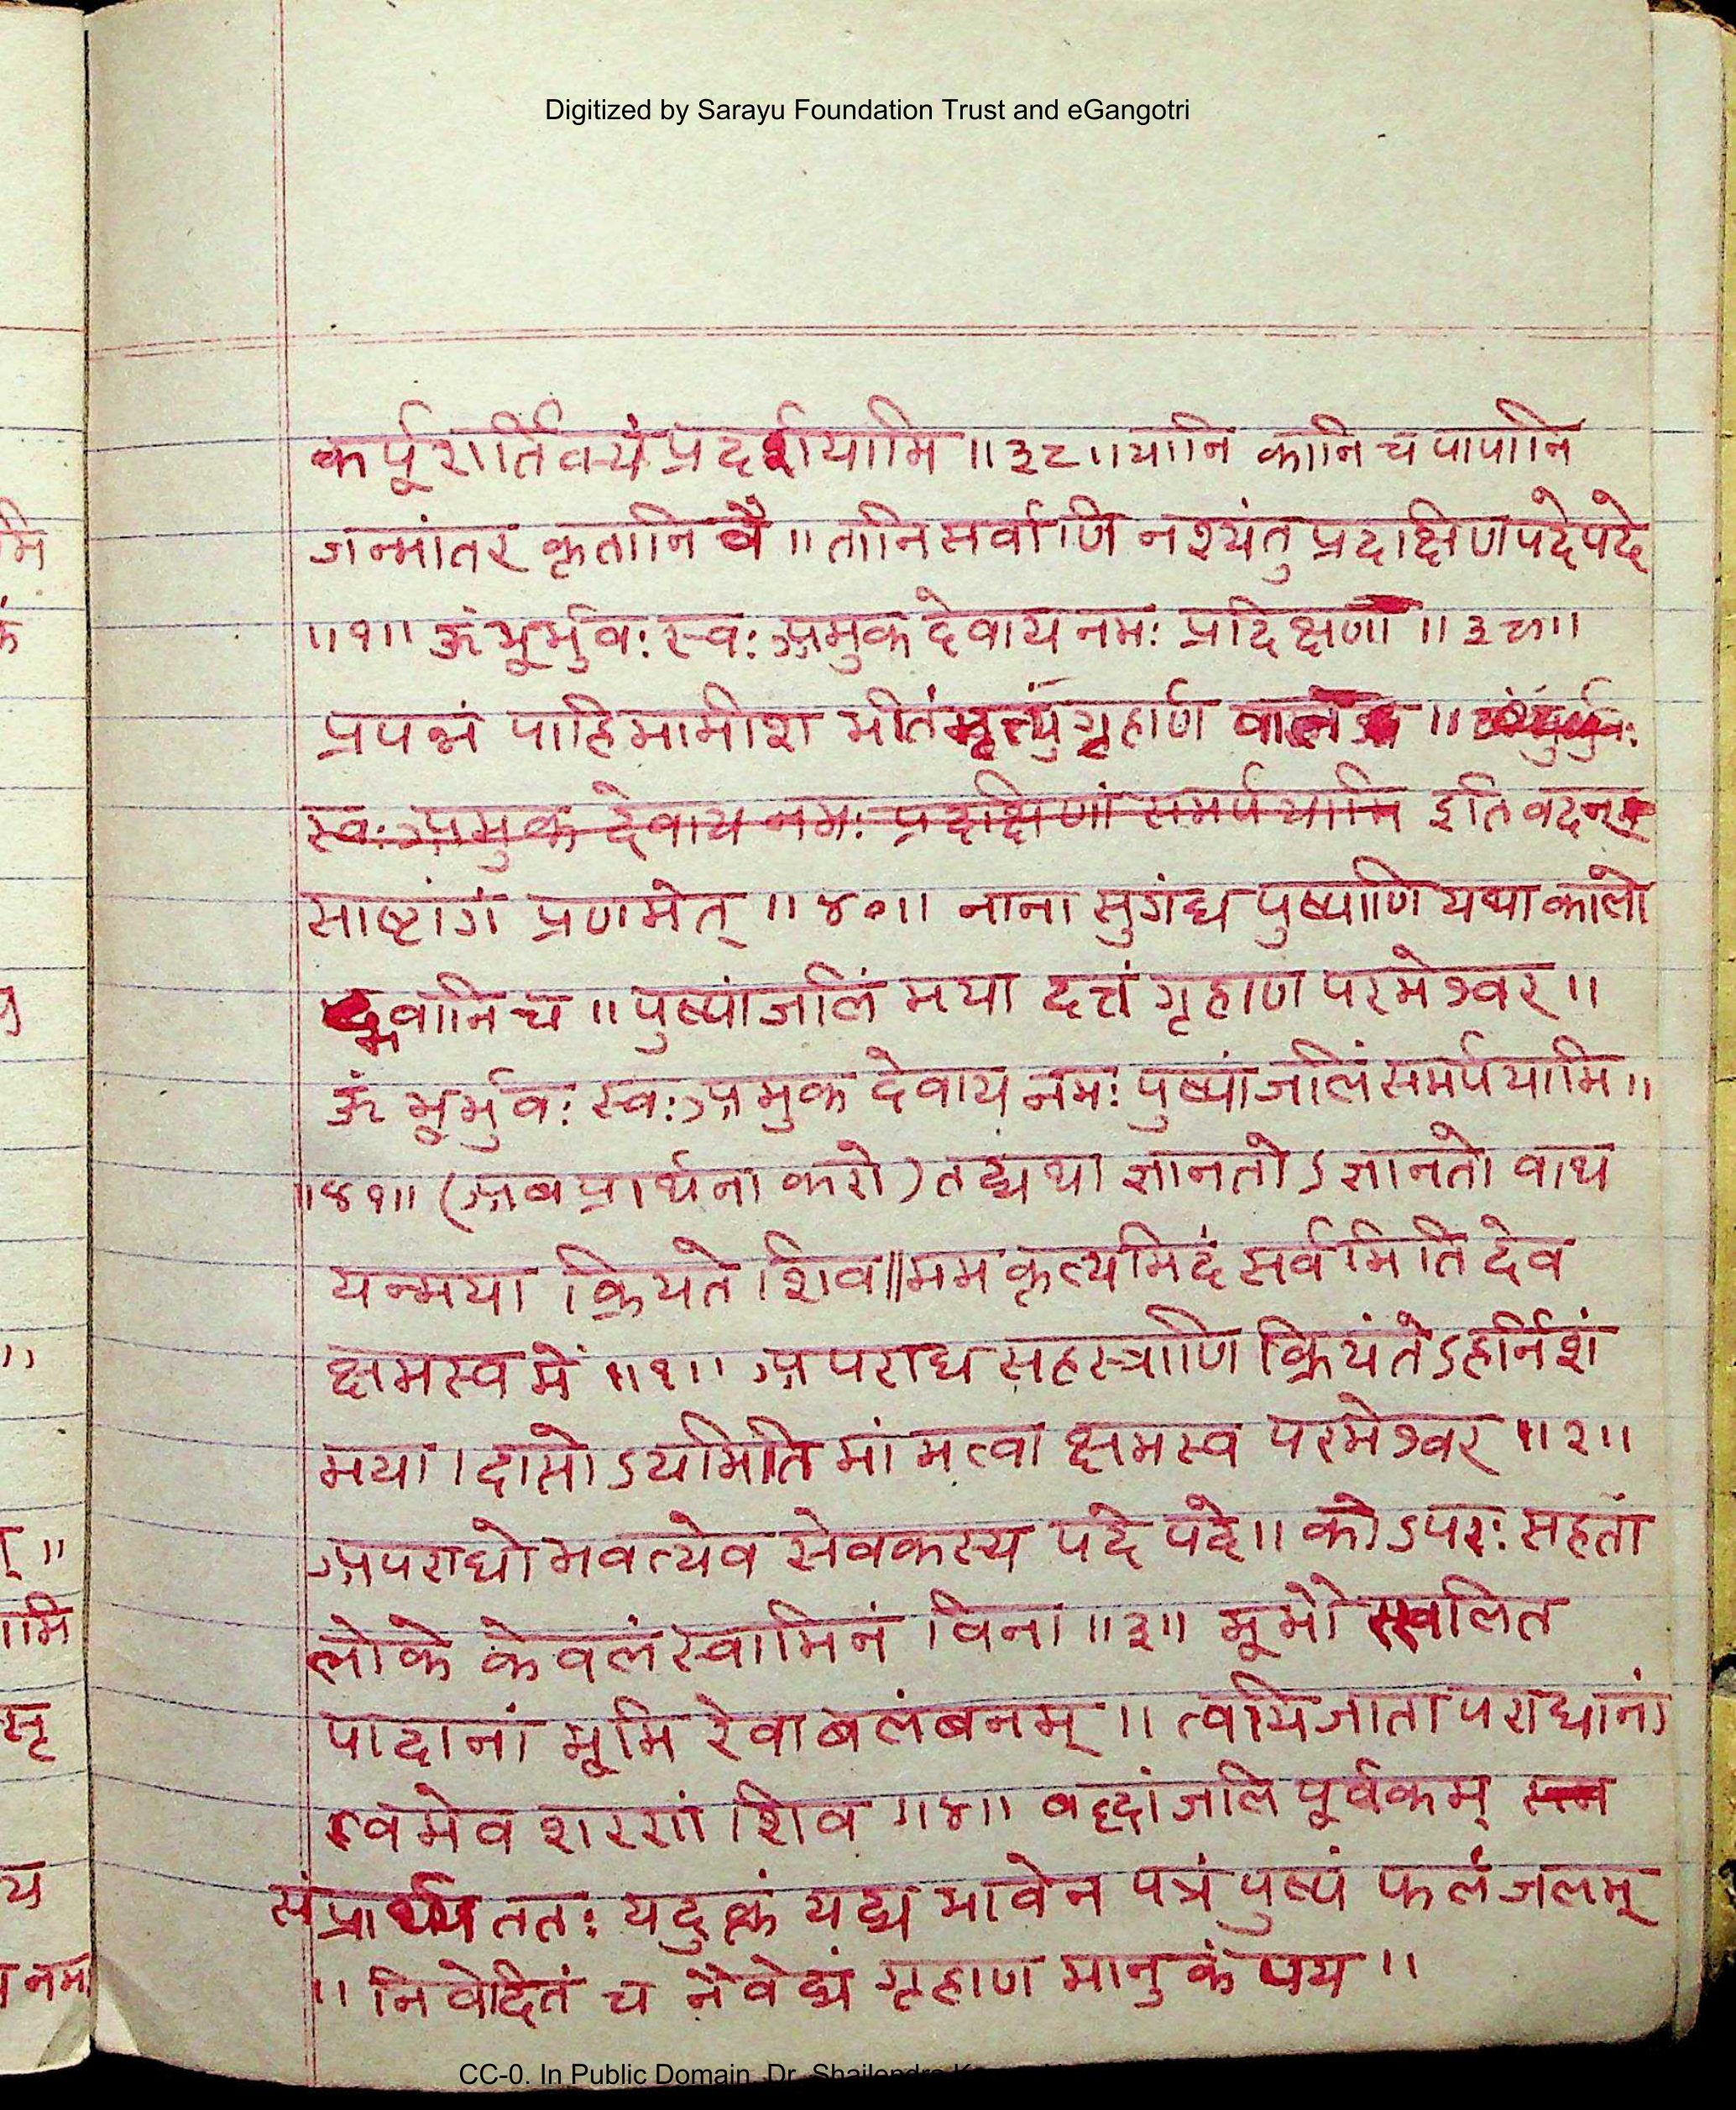 Digitized by Sarayu Foundation Trust and eGangotri
कर्पूरार्तिक्यं प्रदर्शयामि ॥३८॥ यानि कानि च पापानि
जन्मांतर कृतानि वै ॥ तानि सर्वाणि नश्यंतु प्रदाक्षिण पदे पदे
॥१॥ ॐ भूर्भुवः स्वः अमुक देवाय नमः प्रदिक्षणां ॥३९॥
प्रपन्नं पाहि मामीश भीतं मृत्यु गृहार्ण वात् ॥
स्वः अमुक देवाय नमः प्रदक्षिणां समर्पयामि इति वदन्
साष्टांगं प्रणमेत् ॥४०॥ नाना सुगंध पुष्पाणि यथा कालो
द्भवानि च ॥ पुष्पांजलिं मया दत्तं गृहाण परमेश्वर ॥
ॐ भूर्भुवः स्वः अमुक देवाय नमः पुष्पांजलिं समर्पयामि ॥
॥४१॥ (अब प्रार्थना करो) तद्यथा ज्ञानतोऽज्ञानतो वाथ
यन्मया क्रियते शिव ॥ मम कृत्यमिदं सर्वमिति देव
क्षमस्व में ॥१॥ अपराध सहस्त्राणि क्रियंतेऽहर्निशं
मया । दासोऽयमिति मां मत्वा क्षमस्व परमेश्वर ॥२॥
अपराधो भवत्येव सेवकस्य पदे पदे ॥ कोऽपरः सहतां
लोके केवलं स्वामिनं विना ॥३॥ भूमौ स्खलित
पादानां भूमि रेवाबलंबनम् ॥ त्वयि जाता पराधानां
त्वमेव शरणं शिव ॥४॥ बद्धांजलि पूर्वकम्
संप्रार्थ्य ततः यदुक्तं यद्य भावेन पत्रं पुष्पं फलं जलम्
॥ निवेदितं च नैवेद्यं गृहाण मानुकंपय ॥
CC-0. In Public Domain. Dr. Shailendra